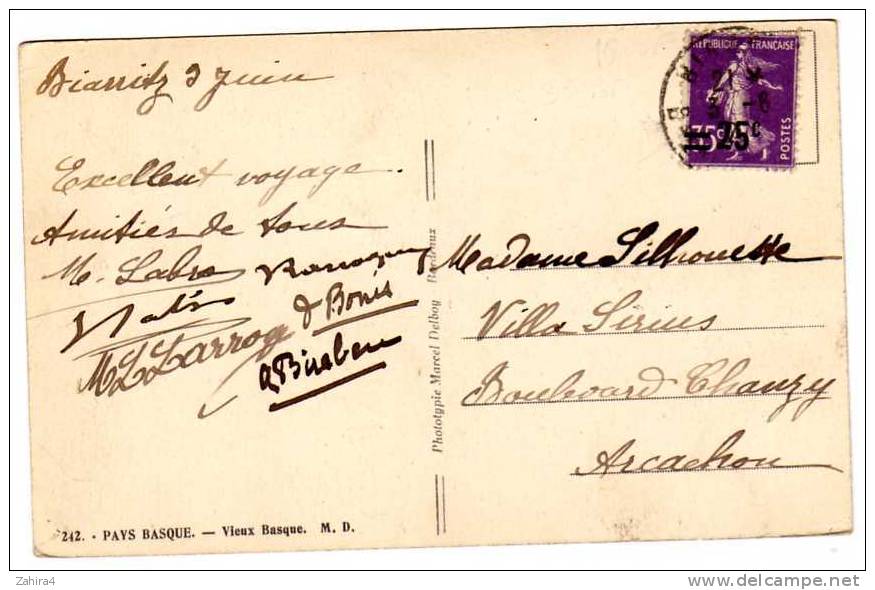 Biarritz 3 Juin
Excellent voyage
Amitiés de tous
M. Labro
de Bonis
M L Larroq
A Biraben
242. - PAYS BASQUE. — Vieux Basque. M. D.
Phototypie Marcel Delboy Bordeaux
RÉPUBLIQUE FRANÇAISE
POSTES
35c
25c
21
3 - 6
Madame Silhouette
Villa Sirius
Boulevard Chanzy
Arcachon
Zahira4
delcampe.net